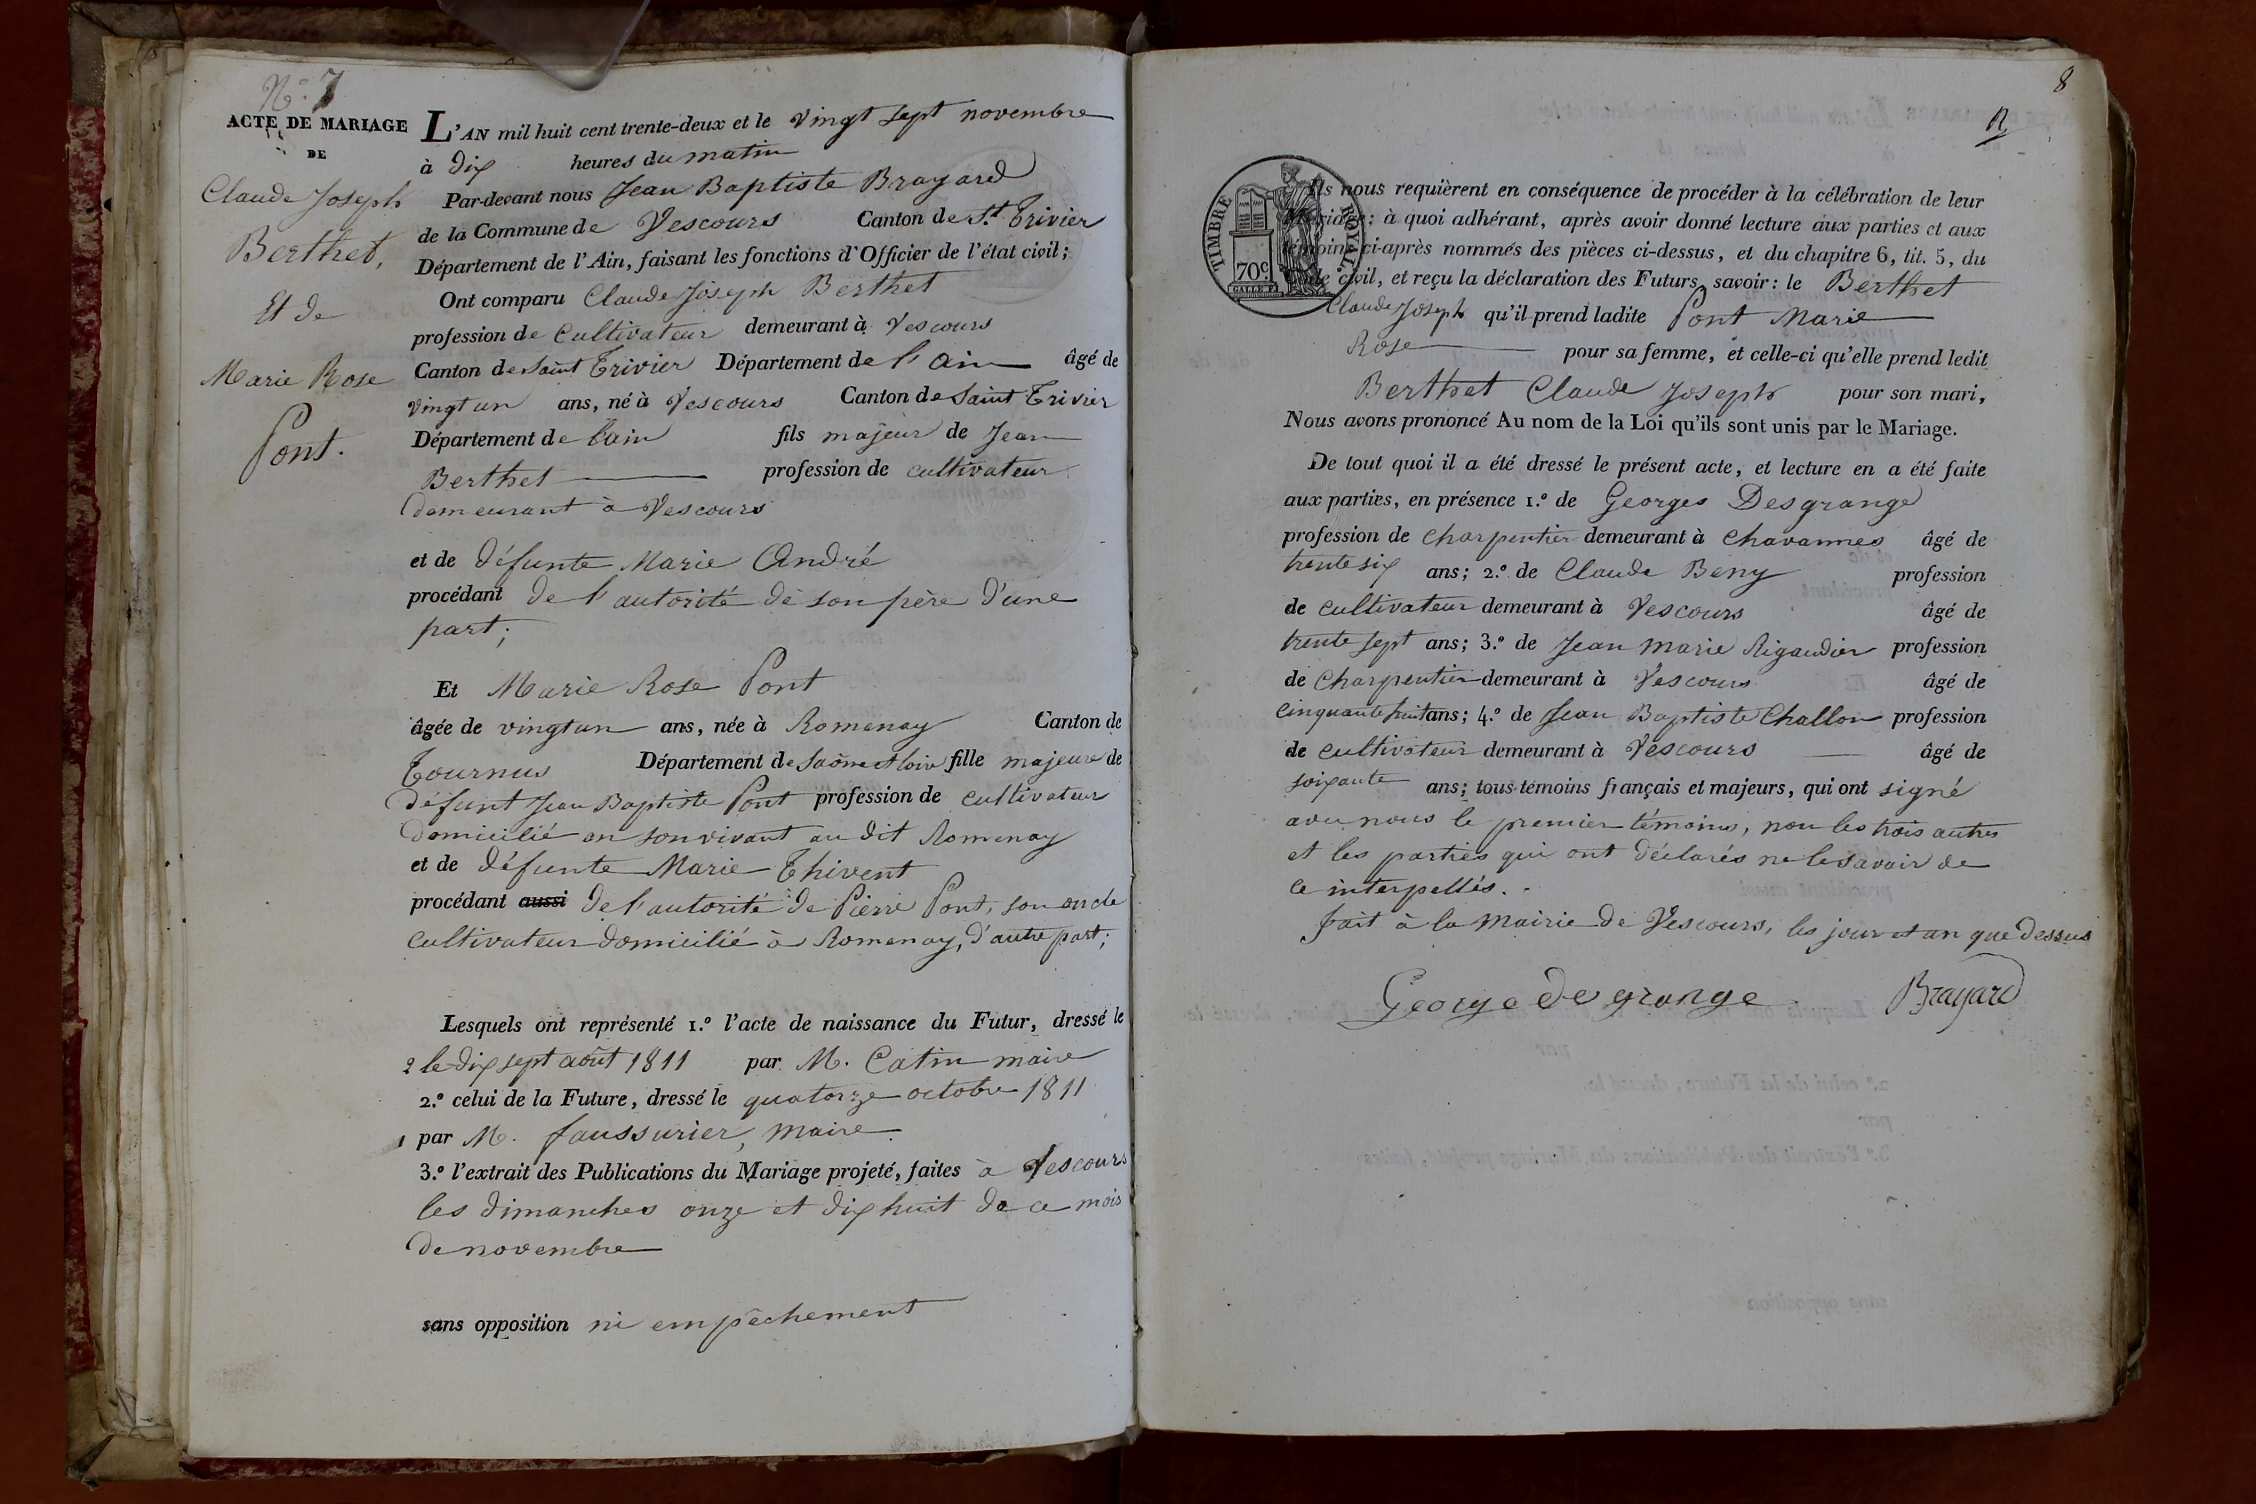 N.º 7
ACTE DE MARIAGE
DE
Claude Joseph
Berthet,
Et de
Marie Rose
Pont.
L'AN mil huit cent trente-deux et le vingt sept novembre
à dix heures du matin
Par-devant nous Jean Baptiste Brayard
de la Commune de Vescours Canton de St. Trivier
Département de l'Ain, faisant les fonctions d'Officier de l'état civil;
Ont comparu Claude Joseph Berthet
profession de cultivateur demeurant à Vescours
Canton de Saint Trivier Département de l'ain âgé de
vingt un ans, né à Vescours Canton de Saint Trivier
Département de l'ain fils majeur de Jean
Berthet profession de cultivateur
demeurant à Vescours
et de défunte Marie André
procédant de l'autorité de son père d'une
part;
Et Marie Rose Pont
âgée de vingt un ans, née à Romenay Canton de
Tournus Département de Saône et loire fille majeure de
défunt Jean Baptiste Pont profession de cultivateur
domicilié en son vivant au dit Romenay
et de défunte Marie Thivent
procédant aussi de l'autorité de Pierre Pont, son oncle
cultivateur domicilié à Romenay, d'autre part;
Lesquels ont représenté 1.º l'acte de naissance du Futur, dressé le
2 le dix sept août 1811 par M. Catin maire
2.º celui de la Future, dressé le quatorze octobre 1811
1 par M. faussurier, maire.
3.º l'extrait des Publications du Mariage projeté, faites à Vescours
les dimanches onze et dix huit de ce mois
de novembre
sans opposition ni empêchement
8
TIMBRE ROYAL.
70 c.
Ils nous requièrent en conséquence de procéder à la célébration de leur
Mariage: à quoi adhérant, après avoir donné lecture aux parties et aux
témoins ci-après nommés des pièces ci-dessus, et du chapitre 6, tit. 5, du
Code civil, et reçu la déclaration des Futurs, savoir: le Berthet
Claude Joseph qu'il prend ladite Pont Marie
Rose pour sa femme, et celle-ci qu'elle prend ledit
Berthet Claude Joseph pour son mari,
Nous avons prononcé Au nom de la Loi qu'ils sont unis par le Mariage.
De tout quoi il a été dressé le présent acte, et lecture en a été faite
aux parties, en présence 1.º de Georges Desgrange
profession de charpentier demeurant à Chavannes âgé de
trente six ans; 2.º de Claude Beny profession
de cultivateur demeurant à Vescours âgé de
trente sept ans; 3.º de Jean Marie Rigaudier profession
de charpentier demeurant à Vescours âgé de
cinquante huit ans; 4.º de Jean Baptiste Challon profession
de cultivateur demeurant à Vescours âgé de
soixante ans; tous témoins français et majeurs, qui ont signé
avec nous le premier témoins, non les trois autres
et les parties qui ont déclarés ne le savoir de
ce interpellés.
fait à la Mairie de Vescours, les jour et an que dessus
George de grange Brayard